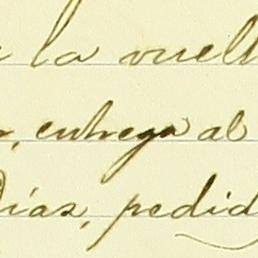 la vuelt
, entrega al
Días, pedid